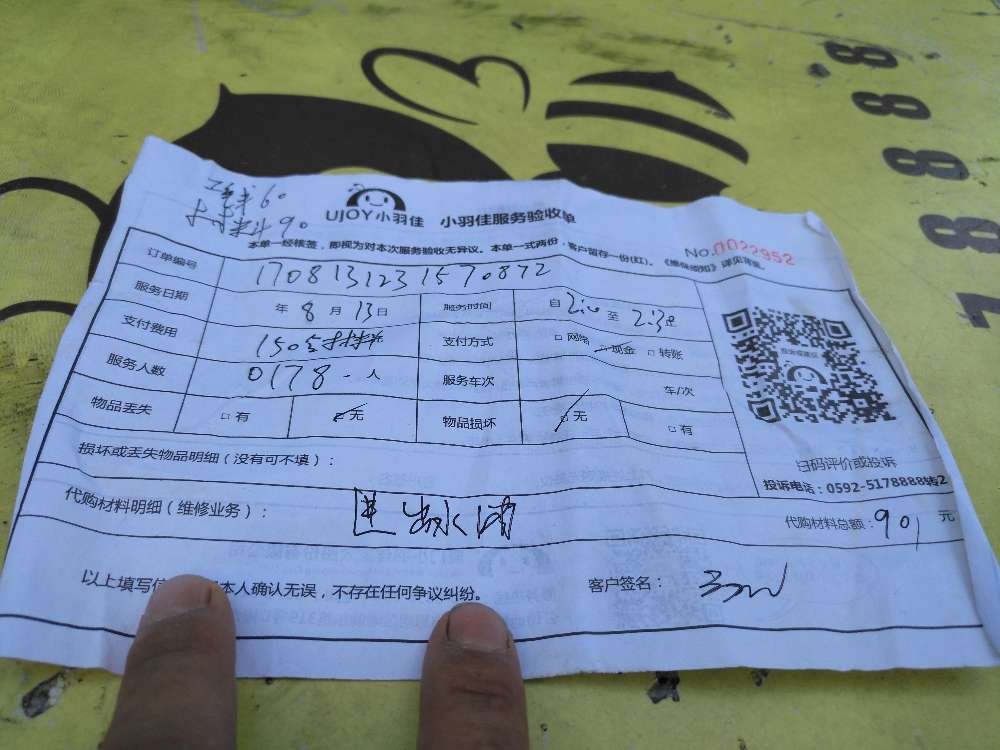 工费60
材料90
UJOY小羽佳 小羽佳服务验收单
本单一经核签，即视为对本次服务验收无异议。本单一式两份，客户留存一份(红)。《维保须知》详见背面。
No.0022952
订单编号 1708131231570872
服务日期 年 8 月 13 日 服务时间 自 2:00 至 2:30
支付费用 150 支付方式 □ 网络 □ 现金 □ 转账
服务人数 0178 人 服务车次 车/次
物品丢失 □ 有 □ 无 物品损坏 □ 无 □ 有
损坏或丢失物品明细（没有可不填）：
扫码评价或投诉
投诉电话：0592-5178888转2
代购材料明细（维修业务）： 进水
代购材料总额： 90 元
以上填写 本人确认无误，不存在任何争议纠纷。 客户签名：
8888